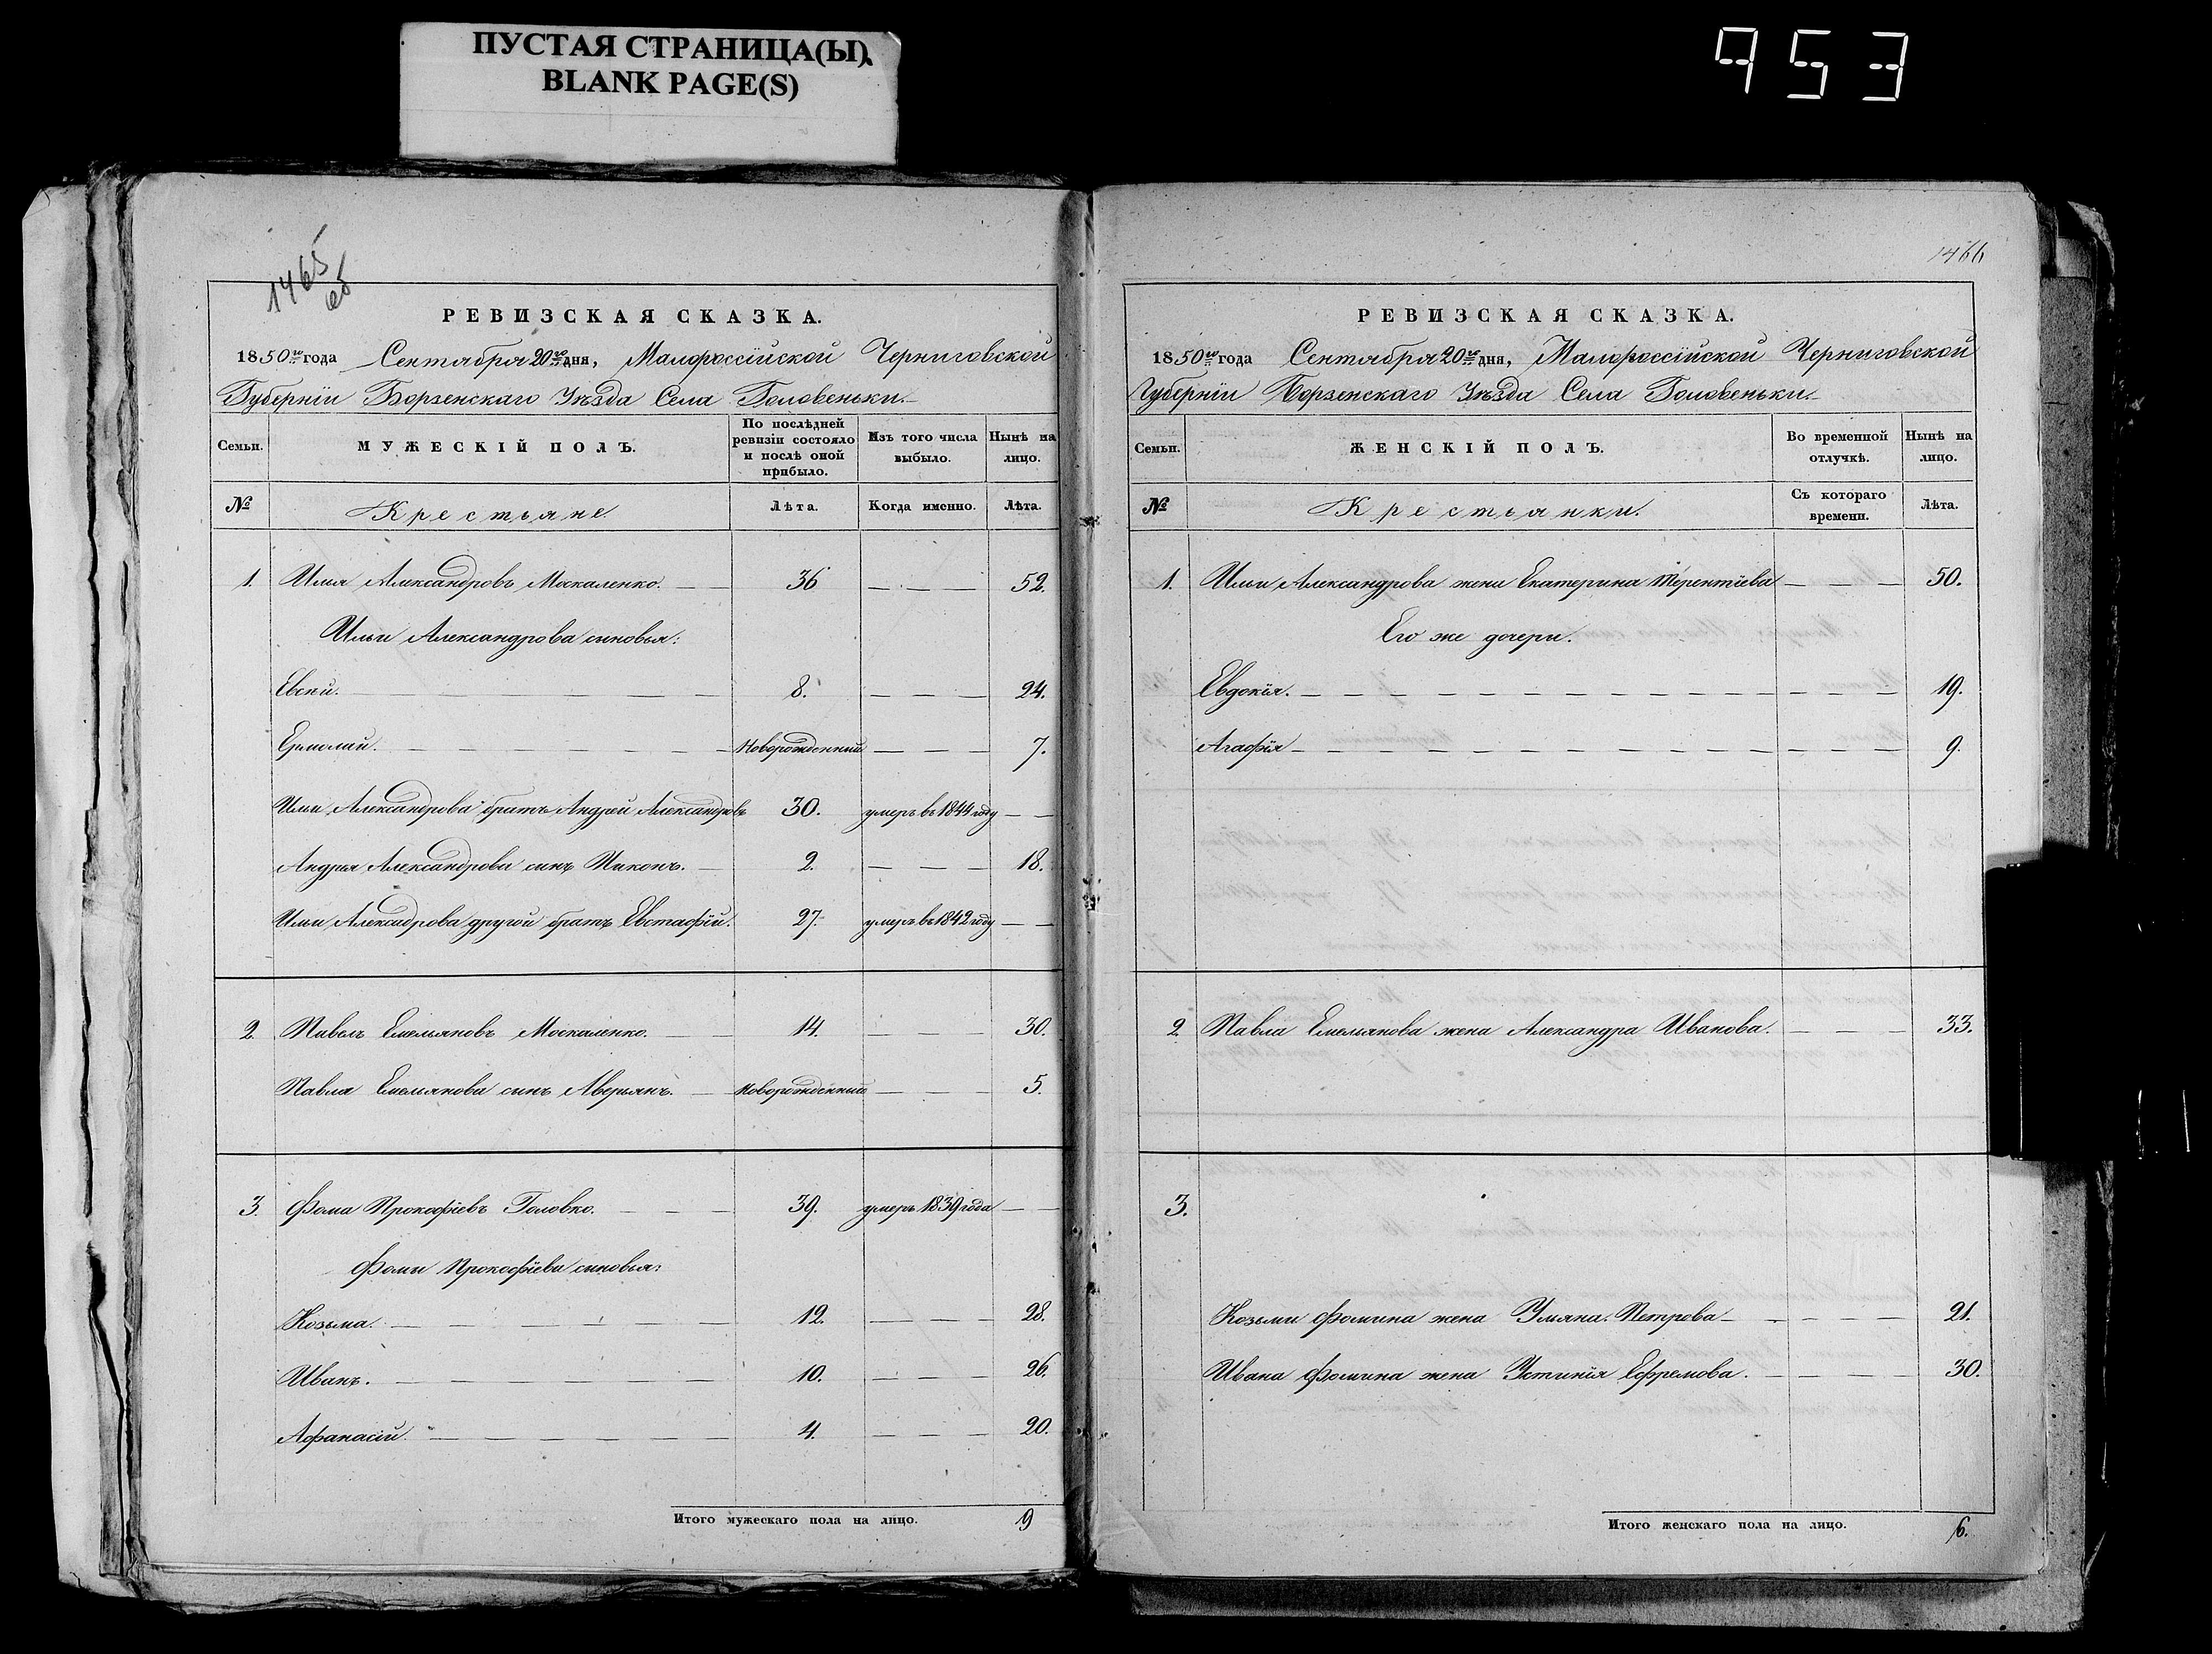 ПУСТАЯ СТРАНИЦА(Ы).
BLANK PAGE(S)
953
1465
об
РЕВИЗСКАЯ СКАЗКА.
1850го года Сентября 20го дня, Малороссійской Черниговской
Губерніи Борзенскаго Уѣзда Села Головеньки.
Семьи. МУЖЕСКІЙ ПОЛЪ. По послѣдней ревизіи состояло и послѣ оной прибыло. Изъ того числа выбыло. Нынѣ на лицо.
№ Крестьяне. Лѣта. Когда именно. Лѣта.
1. Илья Александровъ Москаленко. — 36 — — — 52.
Ильи Александрова сыновья:
Евсей. — 8. — — — 24.
Ермолай. — Новорожденный — — — 7.
Ильи Александрова братъ Андрей Александровъ 30. умеръ въ 1844 году — —
Андрея Александрова сынъ Никонъ. — 2. — — — 18.
Ильи Александрова другой братъ Евстафій. 27. умеръ въ 1842 году — —
2. Павелъ Емельяновъ Москаленко. — 14. — — — 30.
Павла Емельянова сынъ Аверьянъ. — Новорожденный — — — 5.
3. Фома Прокофіевъ Головко. — — — 39. умеръ 1839 года — —
Фомы Прокофіева сыновья:
Козьма. — 12. — — — 28.
Иванъ. — 10. — — — 26.
Афанасій. — 4. — — — 20.
Итого мужескаго пола на лицо. 9
1466
РЕВИЗСКАЯ СКАЗКА.
1850го года Сентября 20го дня, Малороссійской Черниговской
Губерніи Борзенскаго Уѣзда Села Головеньки.
Семьи. ЖЕНСКІЙ ПОЛЪ. Во временной отлучкѣ. Нынѣ на лицо.
№ Крестьянки. Съ котораго времени. Лѣта.
1. Ильи Александрова жена Екатерина Терентіева — — — 50.
Его же дочери.
Евдокія. — 19.
Агафія — 9.
2. Павла Емельянова жена Александра Иванова. — — — 33.
3.
Козьмы Фомина жена Ульяна Петрова — 21.
Ивана Фомина жена Устинія Ефремова. — 30.
Итого женскаго пола на лицо. 6.